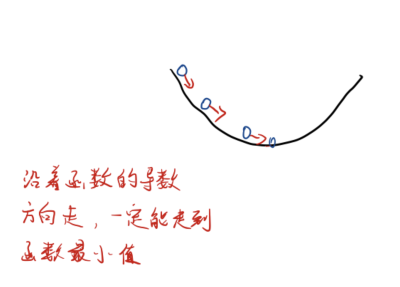 沿着函数的导数
方向走，一定能走到
函数最小值